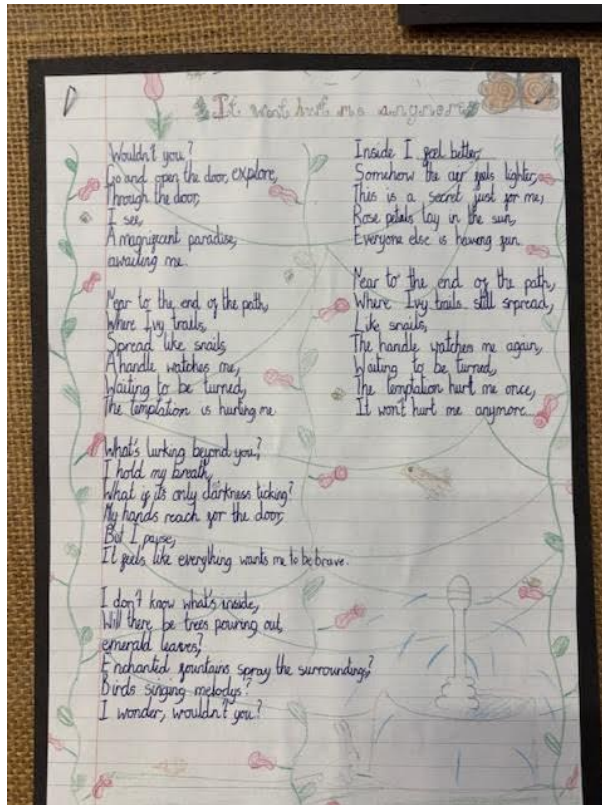 It wont hurt me anymore
Wouldn't you?
Go and open the door, explore,
Through the door,
I see,
A magnificant paradise,
awaiting me.
Near to the end of the path,
Where Ivy trails,
Spread like snails
A handle watches me,
Waiting to be turned,
The temptation is hurting me
What's lurking beyond you?
I hold my breath,
What if it's only darkness ticking?
My hands reach for the door,
But I pause,
It feels like everything wants me to be brave.
I don't know what's inside,
Will there be trees pouring out,
emerald leaves?
Enchanted fountains spray the surroundings?
Birds singing melodys?
I wonder, wouldn't you?
Inside I feel better,
Somehow the air feels lighter,
This is a secret just for me,
Rose petals lay in the sun,
Everyone else is having fun.
Near to the end of the path,
Where Ivy trails still spread,
Like snails,
The handle watches me again,
Waiting to be turned,
The temptation hurt me once,
It won't hurt me anymore...